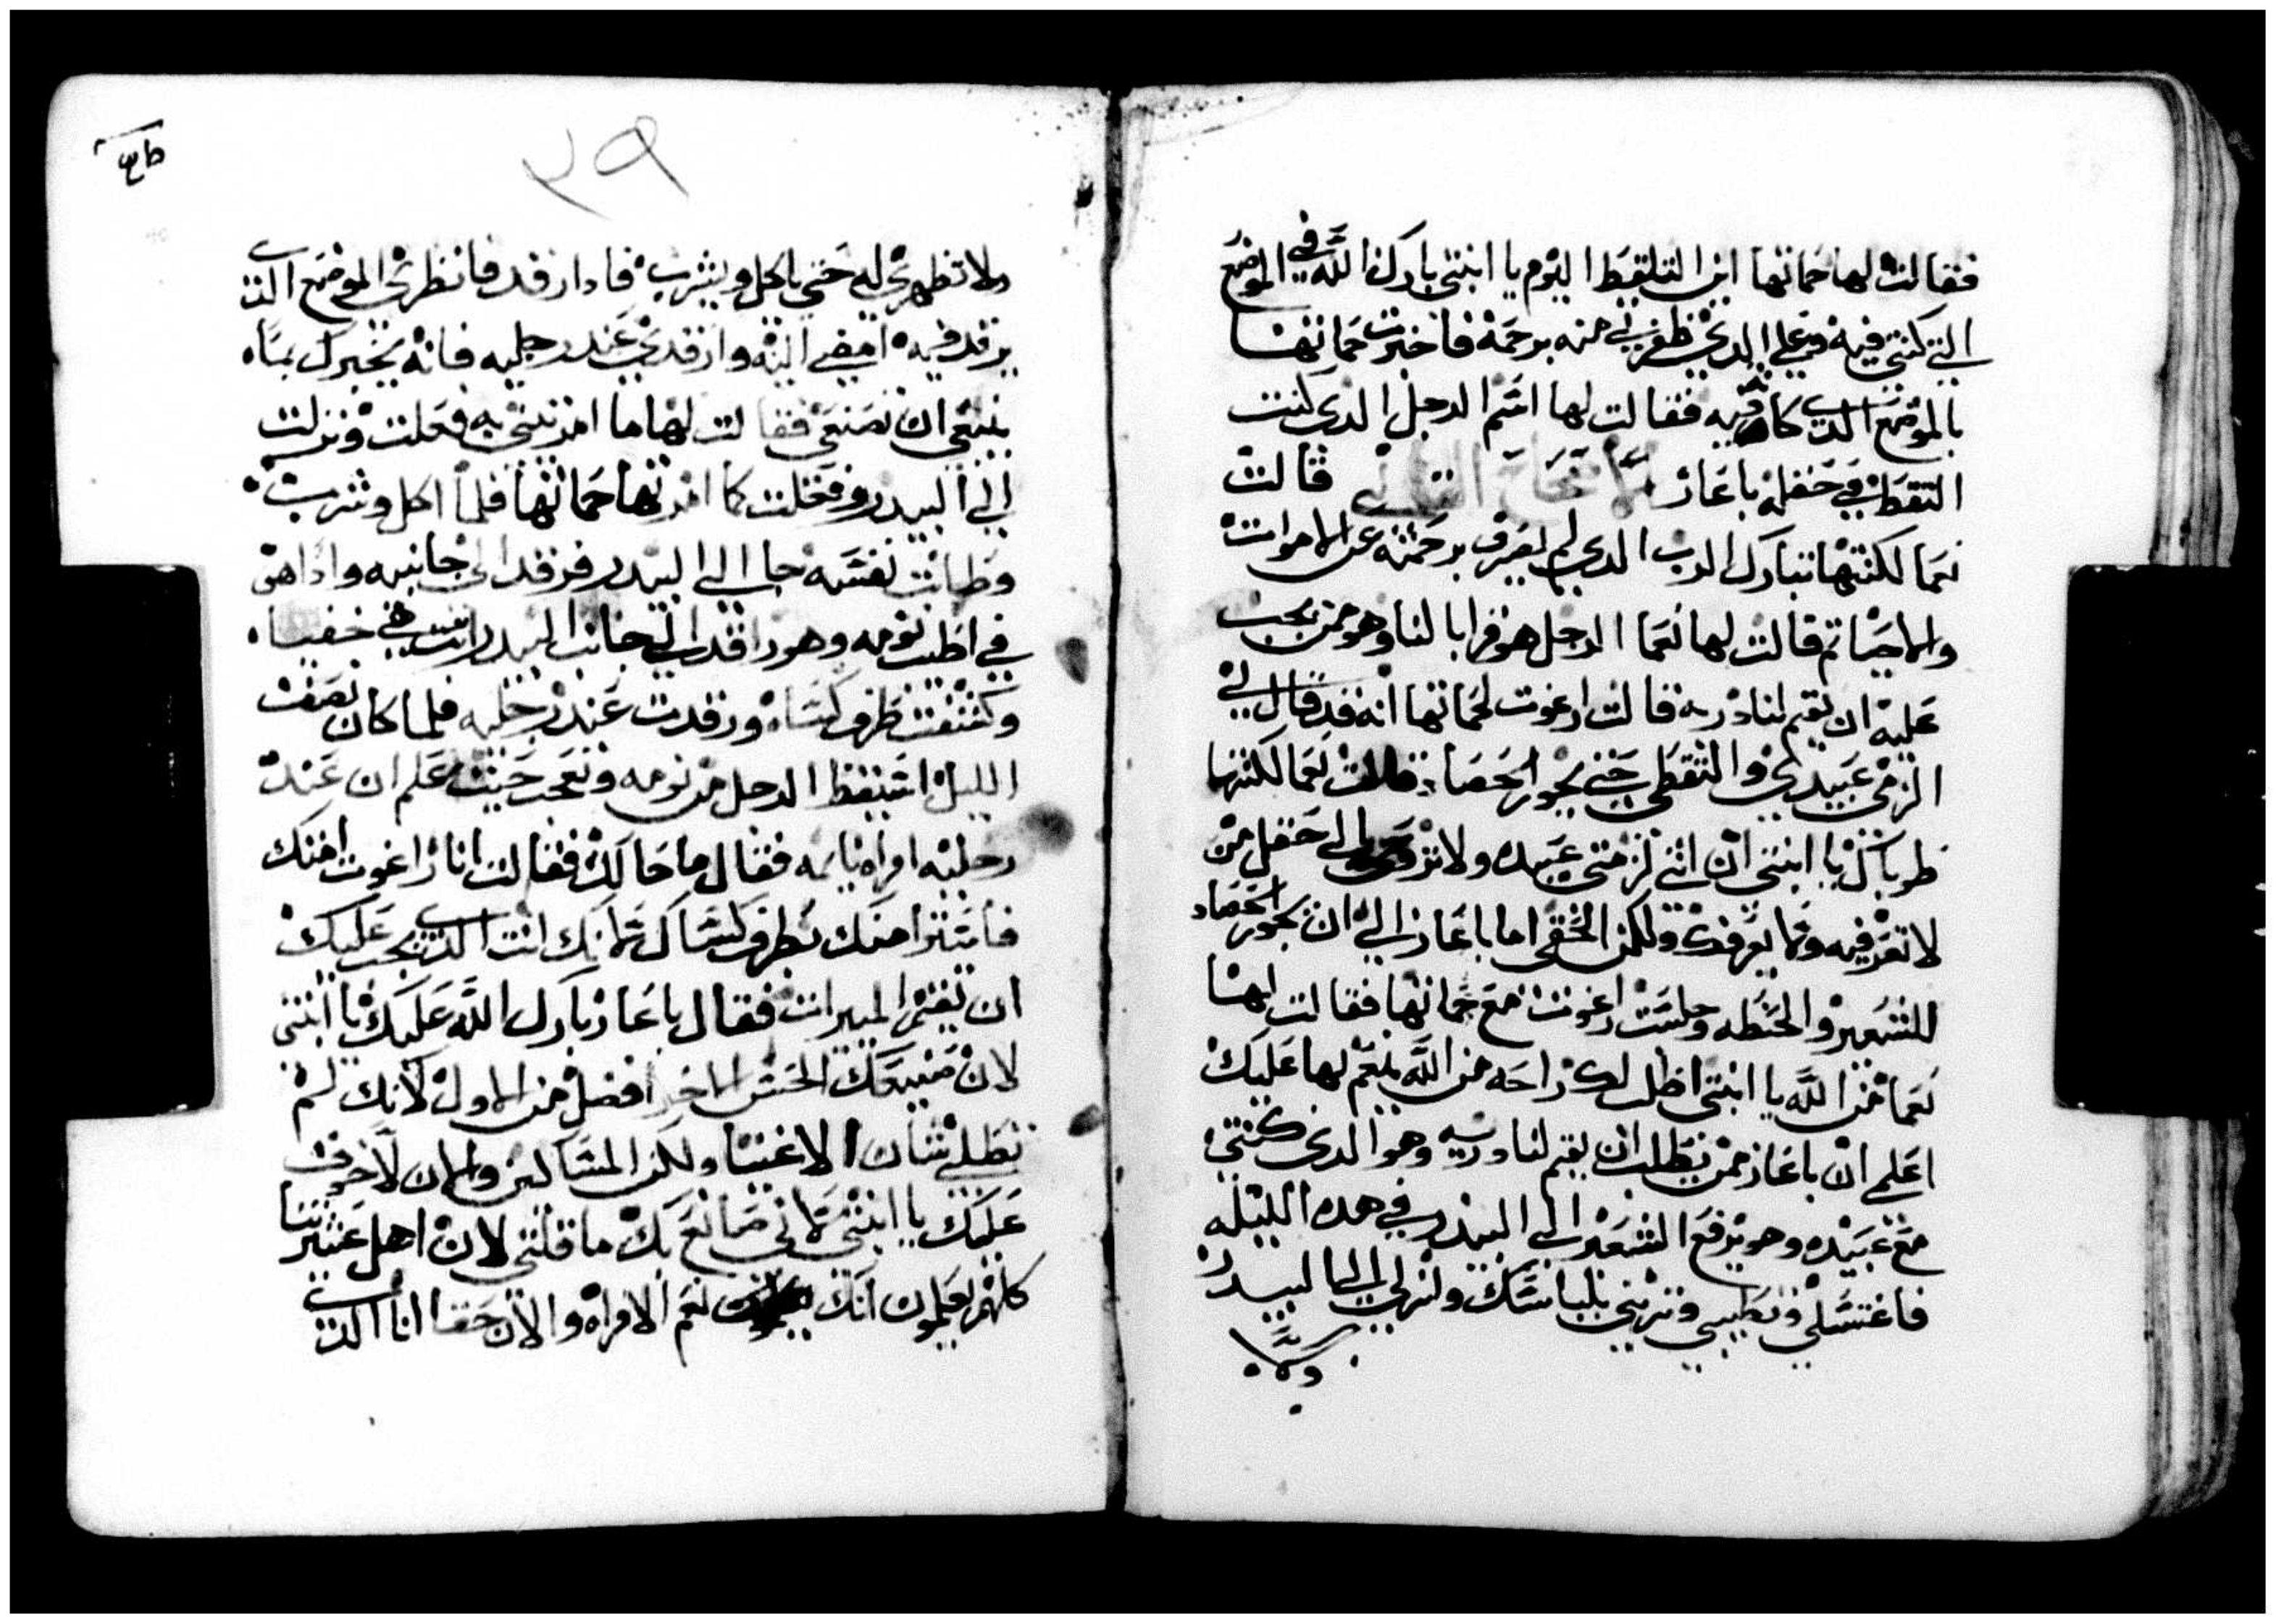 فقالت لها حماتها اين التلقيط اليوم يا ابنتي بارك الله في الموضع
التي كنتي فيه وعلي الدي ظفرتي منه برحمة فاخبرت حماتها
بالموضع الدي كانت فيه فقالت لها اسم الرجل الدي كنت
التقط في حقله باعاز الاصحاح الثالث قالت
نعما لكنتها تبارك الرب الدي لم يعرف برحمته عن الاموات
والاحيا ثم قالت لها نعما الرجل هو قرابا لنا وهو ممن يجب
عليه ان يقيم لنا دريه قالت راغوت لحماتها انه قد قال لي
الزمي عبيدي والتقطي حتي يجوز الحصاد قالت نعما لكنتها
طوباك يا ابنتي ان انتي لزمتي عبيده ولا تروحي الي حقل من
لا تعرفيه وما يعرفك ولكن الحقي اما باعاز الي ان يجوز الحصاد
للشعير والحنطه وجلست راغوت مع حماتها فقالت لها
نعما من الله يا ابنتي اطلب لك راحه من الله ينعم لها عليك
اعلمي ان باعاز ممن نطلب ان يقيم لنا دريه وهو الدي كنتي
مع عبيده وهو يرفع الشعير الي البيدر في هده الليله
فاغتسلي وتطيبي وتزيني بلباسك وانزلي الي البيدر
ولا
٢٩
ولا تظهري له حتي ياكل ويشرب فادا رقد فانظري الموضع الدي
يرقد فيه امضي اليه وارقدي عند رجليه فانه يخبرك بماه
ينبغي ان تصنعي فقالت لها ما امرتيني به فعلت ونزلت
الي البيدر وفعلت كما امرتها حماتها فلما اكل وشرب
وطابت نفسه جا الي البيدر فرقد الي جانبه وادا هي
في اطيب نومه وهو راقد الي جانب البيدر اتت هي خفيا
وكشفت طرف كساه ورقدت عند رجليه فلما كان نصف
الليل استيقظ الرجل من نومه وتعجب حيت علم ان عند
رجليه امراه نايمه فقال ما حالك فقالت انا راغوت امتك
فاستر امتك بطرف كساك لانك انت الدي يجب عليك
ان تقتني الميرات فقال باعاز بارك الله عليك يا ابنتي
لان صنيعك الحسن الاخر افضل من الاول لانك لم
تطلبي شان الاغنيا ولكن المساكين والان لا خوف
عليك يا ابنتي لاني صانع بك ما قلتي لان اهل عشيرتنا
كلهم يعلمون انك نعم الامراه والان حقا انا الدي